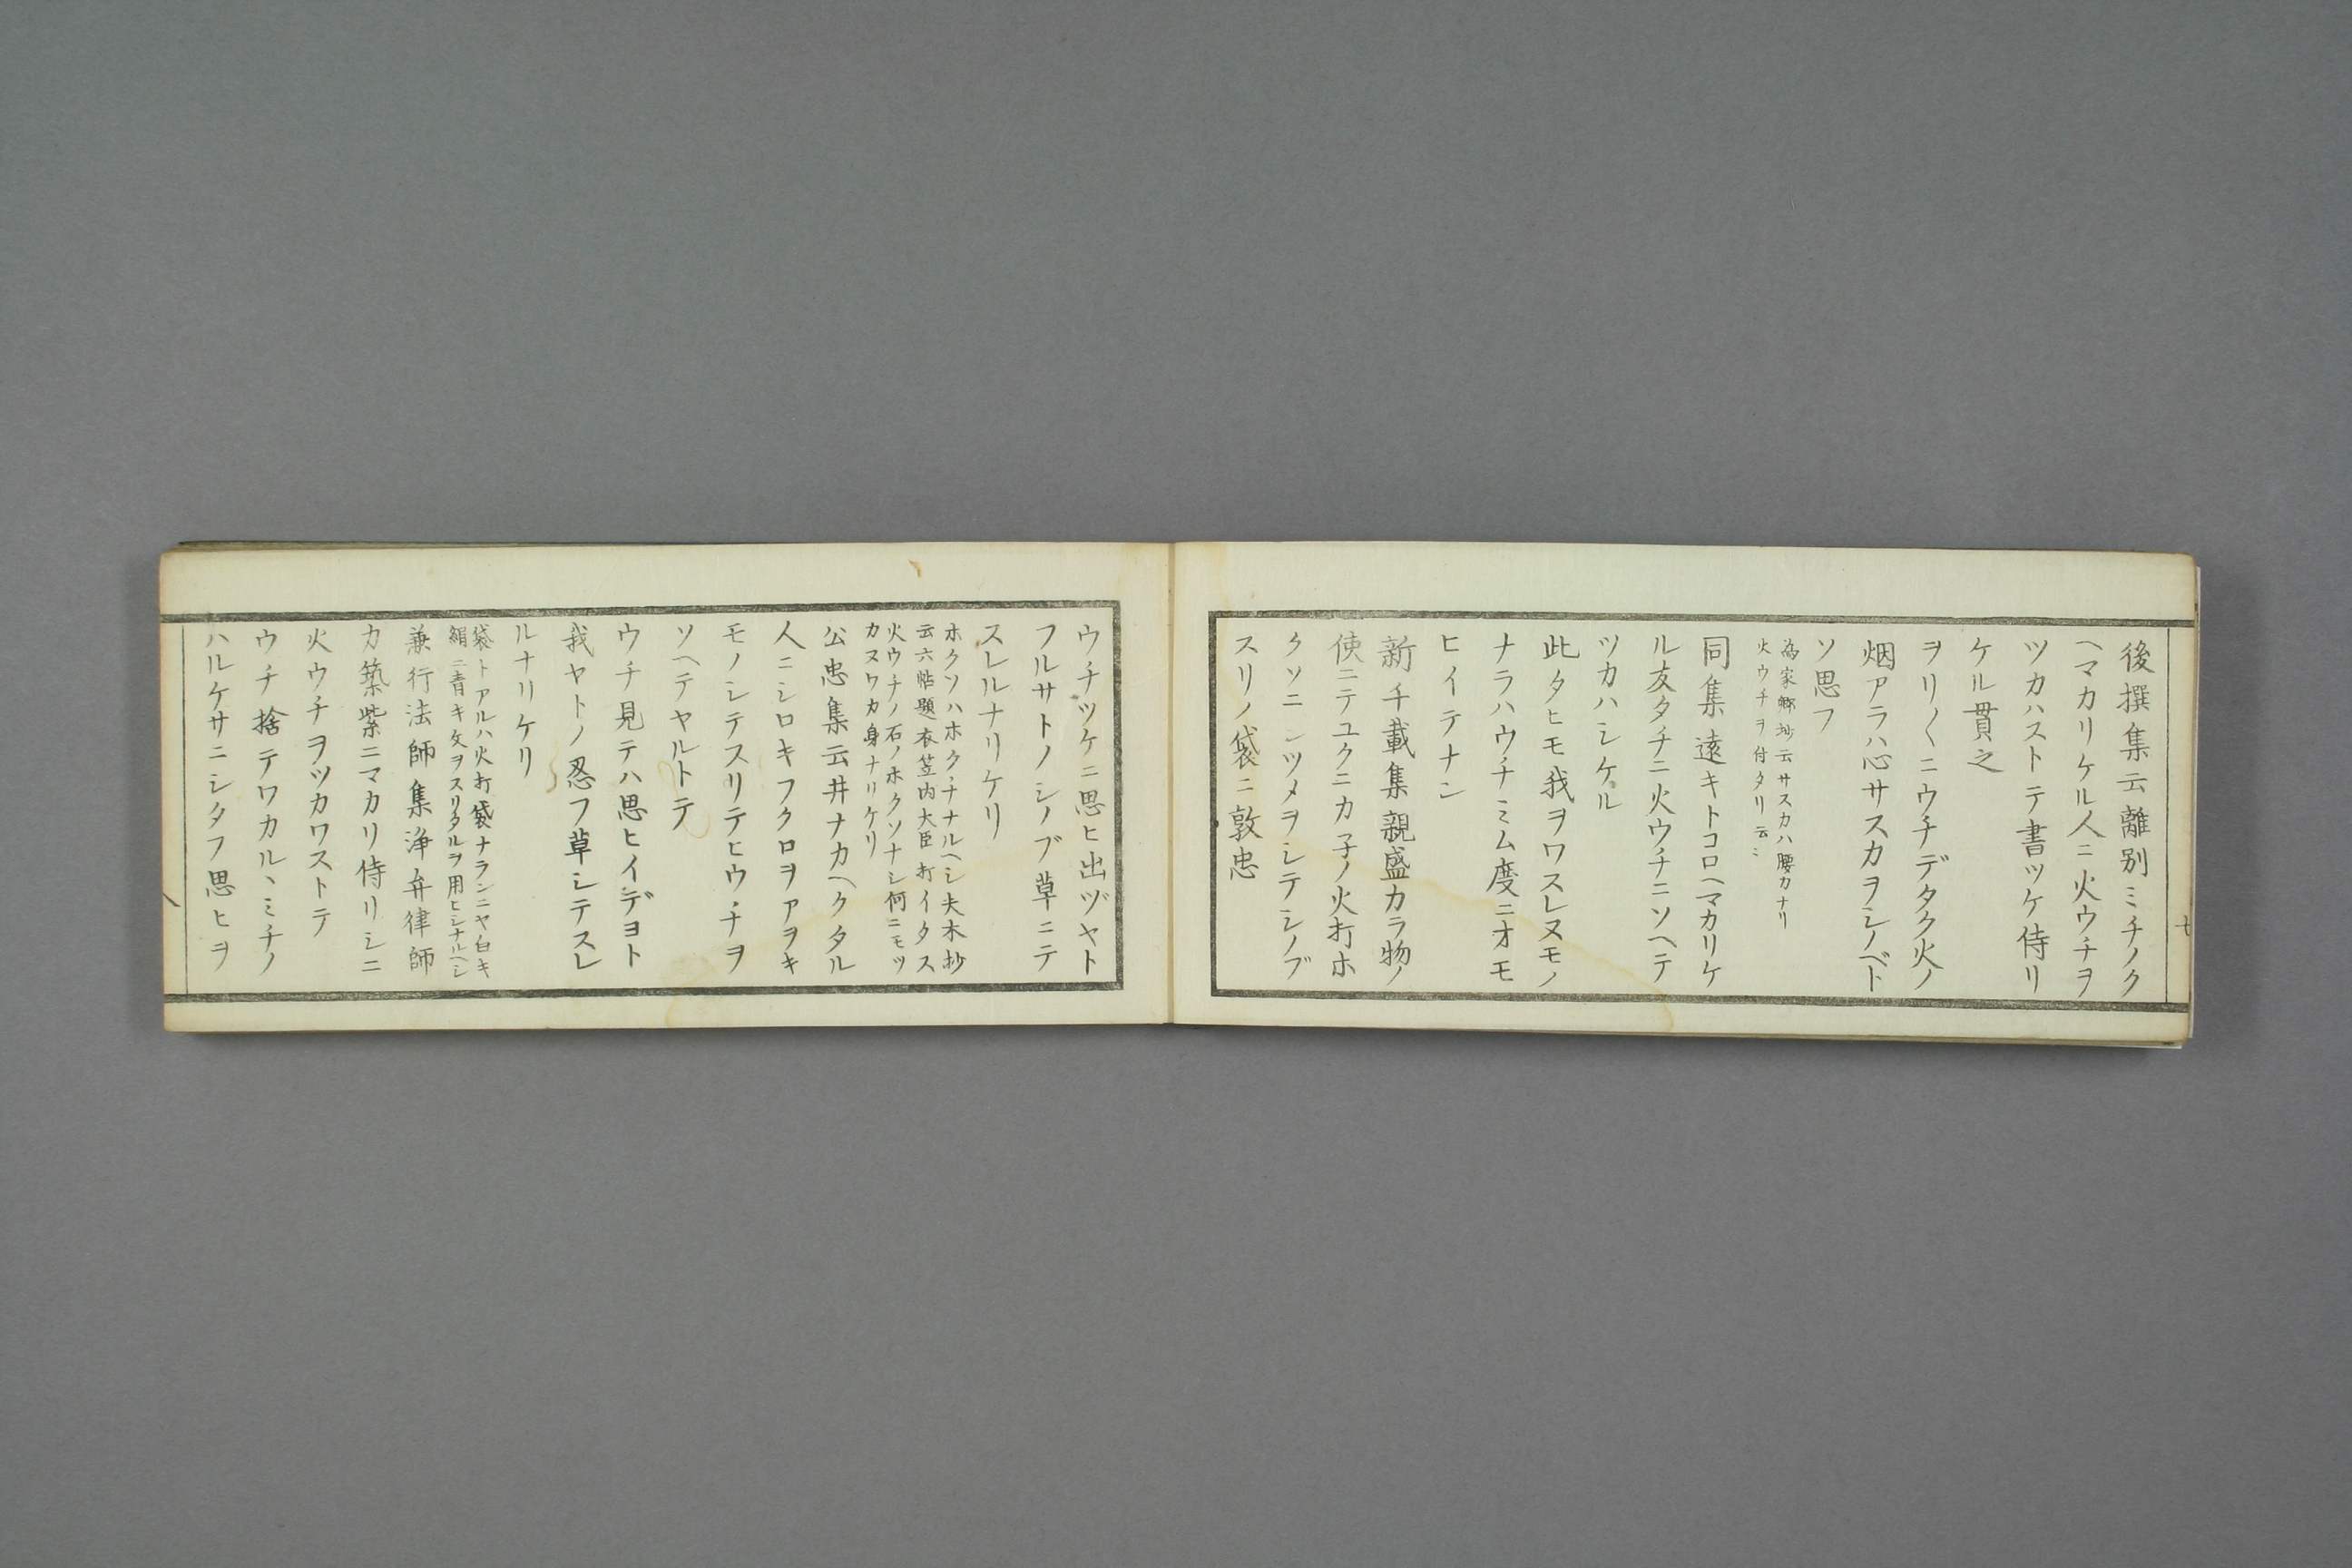 後撰集云離別ミチノク
ヘマカリケル人ニ火ウチヲ
ツカハストテ書ツケ侍リ
ケル貫之
ヲリ〱ニウチデタク火ノ
烟アラハ心サスカヲシノベト
ソ思フ
為家郷抄云サスカハ腰カナリ
火ウチヲ付タリ云〻
同集遠キトコロヘマカリケ
ル友タチニ火ウチニソヘテ
ツカハシケル
此タヒモ我ヲワスレヌモノ
ナラハウチミム度ニオモ
ヒイテナン
新千載集親盛カラ物ノ
使ニテユクニカ子ノ火打ホ
クソニシツメヲシテシノブ
スリノ袋ニ敦忠
七
ウチツケニ思ヒ出ヅヤト
フルサトノシノブ草ニテ
スレルナリケリ
ホクソハホクチナナルヘシ夫木抄
云六帖題衣笠内大臣打イタス
火ウチノ石ノホクソナシ何ニモツ
カヌワカ身ナリケリ
公忠集云井ナカヘクタル
人ニシロキフクロヲアヲキ
モノシテスリテヒウチヲ
ソヘテヤルトテ
ウチ見テハ思ヒイデヨト
我ヤトノ忍フ草シテスレ
ルナリケリ
袋トアルハ火打袋ナランニヤ白キ
絹ニ青キ文ヲスリタルヲ用ヒシナルヘシ
兼行法師集浄弁律師
カ築紫ニマカリ侍リシニ
火ウチヲツカワストテ
ウチ捨テワカルヽミチノ
ハルケサニシタフ思ヒヲ